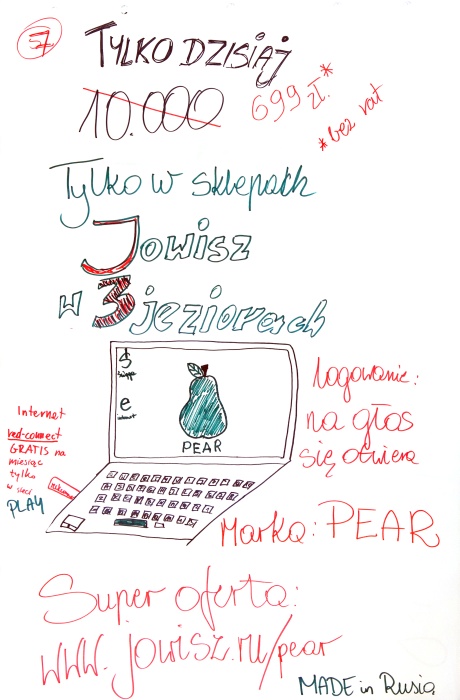 57
TYLKO DZISIAJ
10.000 699 zł.*
*bez rat
Tylko w sklepach
Jowisz
w 3 jeziorach
S
e
PEAR
Logowanie:
na głos
się otwiera
Internet
red-connect
GRATIS na
miesiąc
tylko
w sieci
PLAY
Marka: PEAR
Super oferta:
www.jowisz.ru/pear
MADE in Rusia